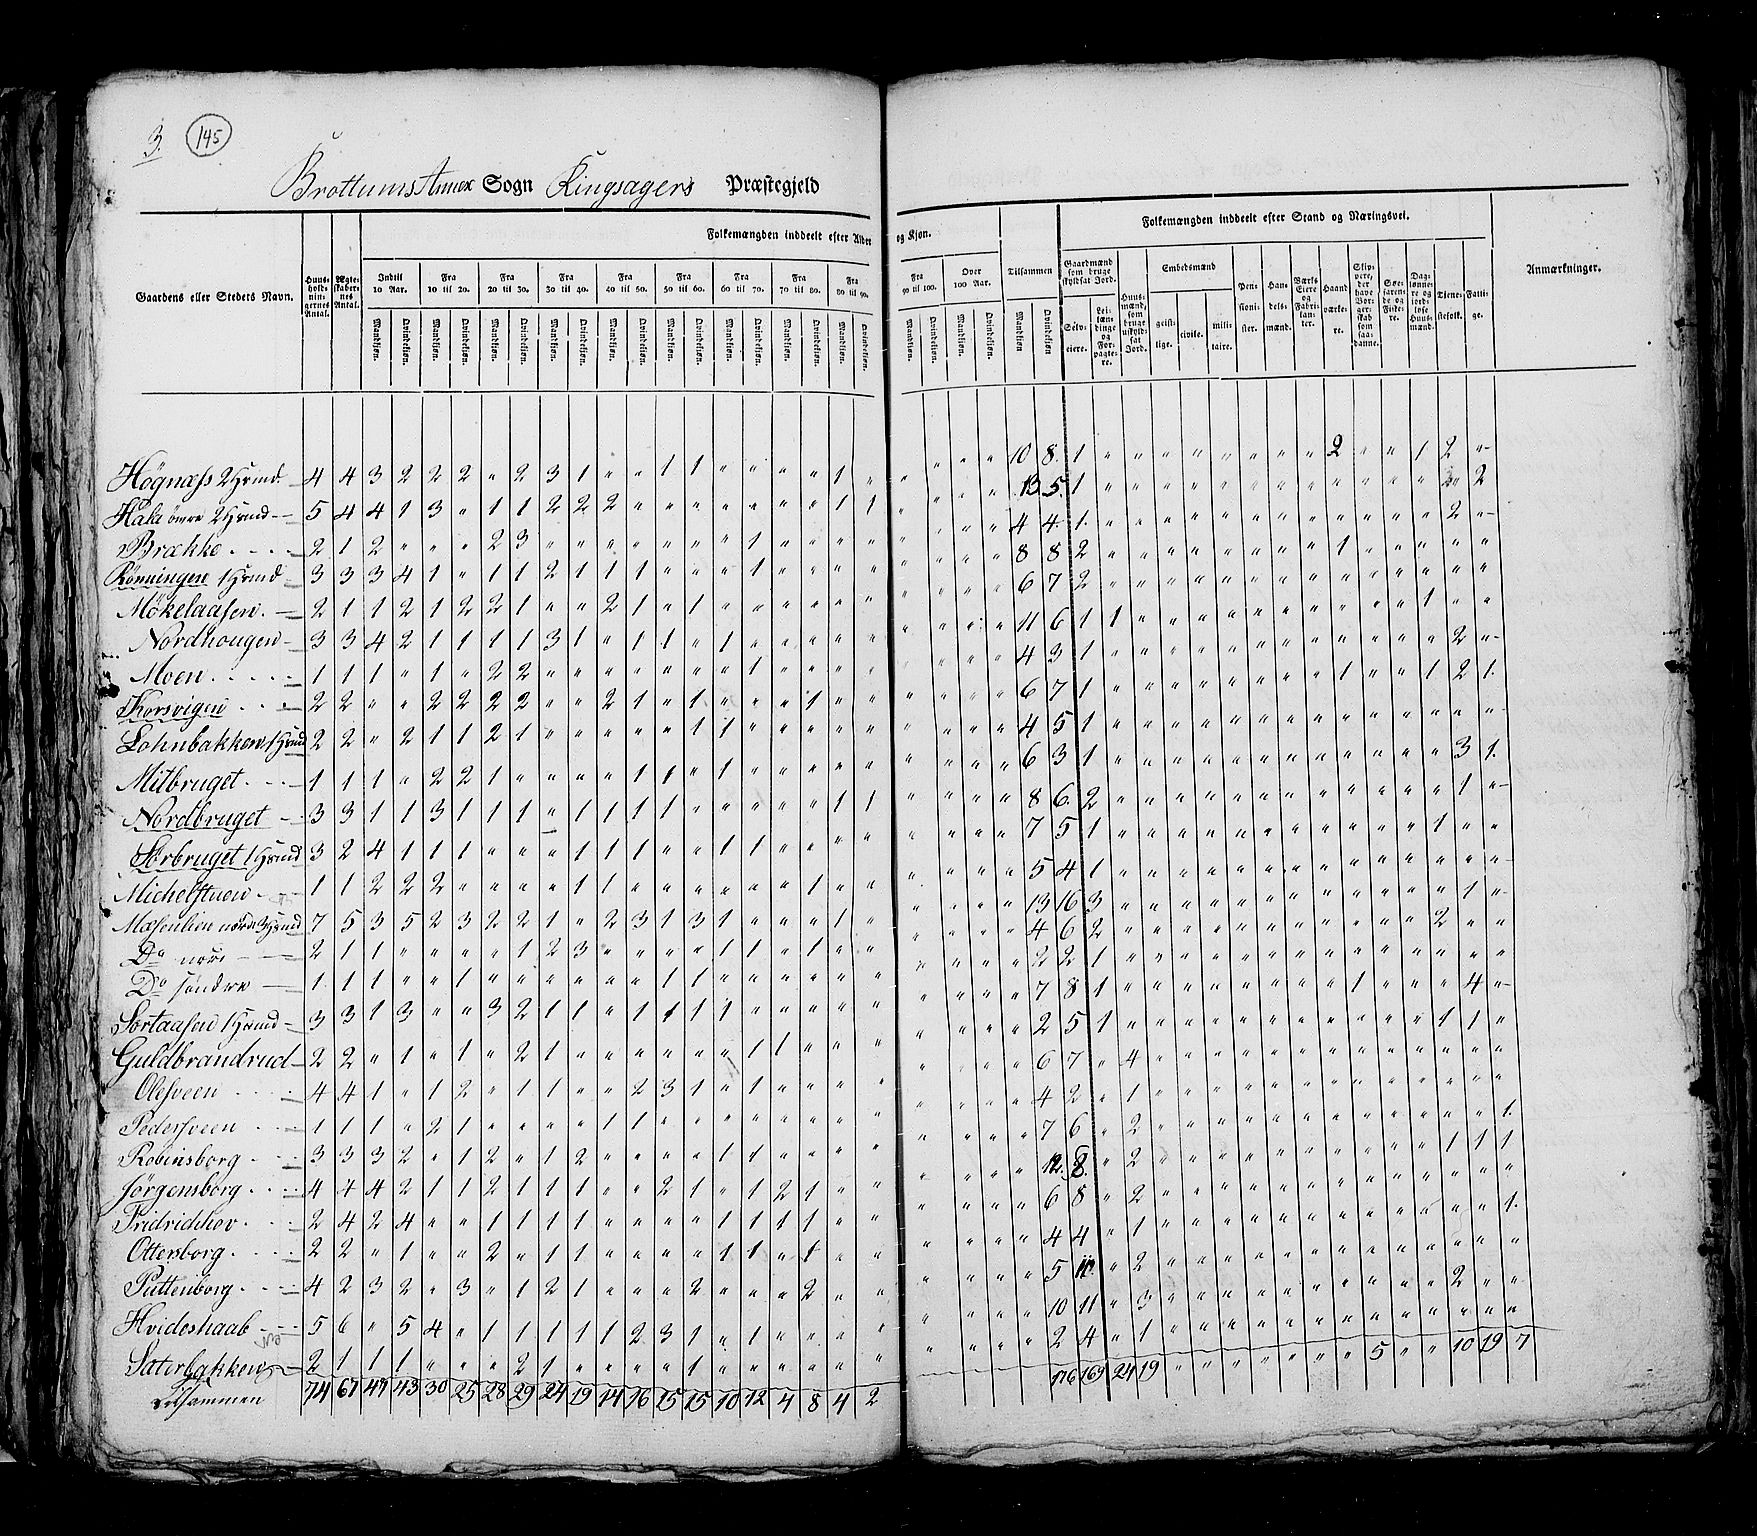 3. 145
Brottums Annex Sogn Ringsagers Præstegjeld
Folkemængden inddeelt efter Alder og Kjøn.
Folkemængden inddeelt efter Stand og Næringsvei.
Gaardens eller Stedets Navn.
Huusholdningernes Antal.
Ægteskabernes Antal.
Indtil 10 Aar.
Fra 10 til 20.
Fra 20 til 30.
Fra 30 til 40.
Fra 40 til 50.
Fra 50 til 60.
Fra 60 til 70.
Fra 70 til 80.
Fra 80 til 90.
Fra 90 til 100.
Over 100 Aar.
Tilsammen
Mandkiøn. Qvindekiøn.
Gaardmænd som bruge skyldsat Jord.
Selveiere.
Leilændinge og Forpagtere.
Huusmænd, som bruge uskyldsat Jord.
Embedsmænd
geistlige.
civile.
militaire.
Pensionister.
Handelsmænd.
Værks Eiere og Fabrikanter.
Haandværkere.
Skippere, der have Borgerskab som saadanne.
Søefarende og Fiskere.
Daglønnere og jordløse Huusmænd.
Tjenestefolk.
Fattige.
Anmærkninger.
Høgnæss 2 Hsmd 4 4 3 2 2 2 " 2 3 1 " " 1 1 " " " " 1 " " " " " 10 8 1 " " " " " " " " 2 " " 1 2 "
Hala øvre 2 Hsmd 5 4 4 1 3 " 1 1 2 2 2 " " " " " " " 1 1 " " " " 13 5 1
Brække 2 1 2 " " " 2 3 " " " " " " " 1 " " " " " " " " 4 4 1
Rönningen 1 Hsmd 3 3 3 4 1 " 1 1 2 1 1 1 " " " 1 " " " " " " " " 8 8 2
Mökelaasen 2 1 1 2 1 2 2 1 " " 2 1 " 1 " " " " " " " " " " 6 7 2
Nordhougen 3 3 4 2 1 1 1 1 3 1 " 1 1 " 1 " " " " " " " " " 11 6 1 1
Moen 1 1 1 " 1 " 2 2 " " " " " " " 1 " " " " " " " " 4 3 1
Korsvigen 2 2 " " 2 2 2 2 " " 2 1 " 1 " " " 1 " " " " " " 6 7 1
Lohnbakken 1 Hsmd 2 2 " 2 1 1 2 1 " " " " " 1 1 " " " " " " " " " 4 5 1
Mitbruget 1 1 1 " 2 2 1 " " " " 1 1 " 1 " " " " " " " " " 6 3 1
Nordbruget 3 3 1 1 3 1 1 1 " 1 1 1 1 " " " " " 1 1 " " " " 8 6 2
Sørbruget 1 Hsmd 3 2 4 1 1 1 " " " 1 1 1 " " 1 1 " " " " " " " " 7 5 1
Michelstuen 1 1 2 2 2 " " " " 1 1 " " " " " " 1 " " " " " " 5 4 1
Mæhlien nørdre 3 Hsmd 7 5 3 5 2 3 2 2 1 " 2 3 1 3 1 " " " 1 " " " " " 13 16 3
Do nøre 2 1 1 " " " " 1 2 3 " " " " 1 1 " 1 " " " " " " 4 6 2
Do søndre 1 1 1 " " " " " " " " " 1 1 " " " " " " " " " " 2 2 1
Sortaasen 1 Hsmd 3 3 1 3 " " 3 2 1 1 " 1 1 1 1 " " " " " " " " " 7 8 1
Guldbrandrud 2 2 " 1 " 1 " 2 1 " " " " " " 1 1 " " " " " " " 2 5 1
Olesveen 4 4 1 " 1 2 " 1 1 " " 2 3 1 " 1 " " " " " " " " 6 7 " 4
Pedersveen 1 1 1 " 2 1 " " " " 1 1 " " " " " " " " " " " " 4 2 " 1
Robinsborg 3 3 3 2 " 1 2 " 1 2 " " " " 1 1 " " " " " " " " 7 6 " 2
Jørgensborg 4 4 4 2 1 1 2 1 1 1 " " 2 1 " 1 2 1 " " " " " " 12 8 " 2
Fridrichhov 2 4 2 4 " " 1 1 1 1 " " " " 1 1 1 1 " " " " " " 6 8 " 2
Ottersborg 2 2 " 1 " " 2 " 1 1 " " " " 1 1 " 1 " " " " " " 4 4 " 1
Puttenborg 4 2 3 2 " 3 " 1 2 1 " " " 2 " " " 2 " " " " " " 5 11 " 2
Hvideshaab 5 6 " 5 4 " 1 1 1 1 1 2 3 1 " 1 " " " " " " " " 10 11 " 3
Sæterbakken 2 1 1 1 " " " 2 1 " " " " 1 " " " " " " " " " " 2 4 " 1
Tilsammen 74 67 47 43 30 25 28 29 24 19 14 16 15 15 10 12 4 8 4 2 " " " " 176 169 24 19 " " " " " " " 5 " " 10 19 7